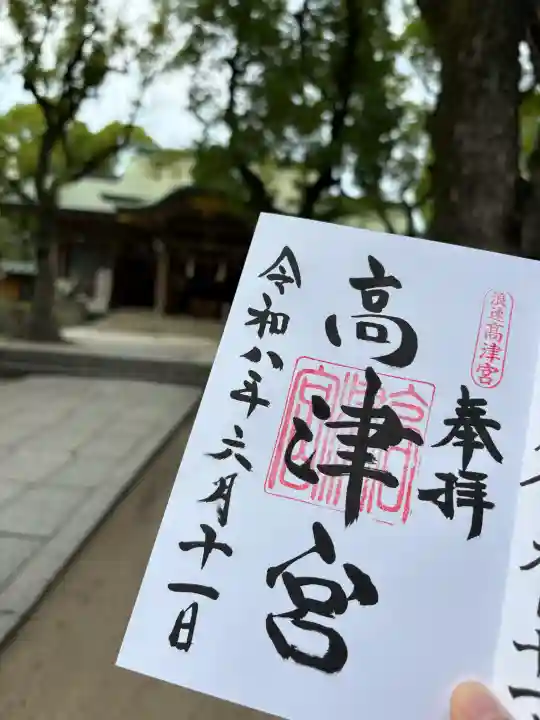 浪速高津宮
奉拝
高津宮
令和八年六月十一日